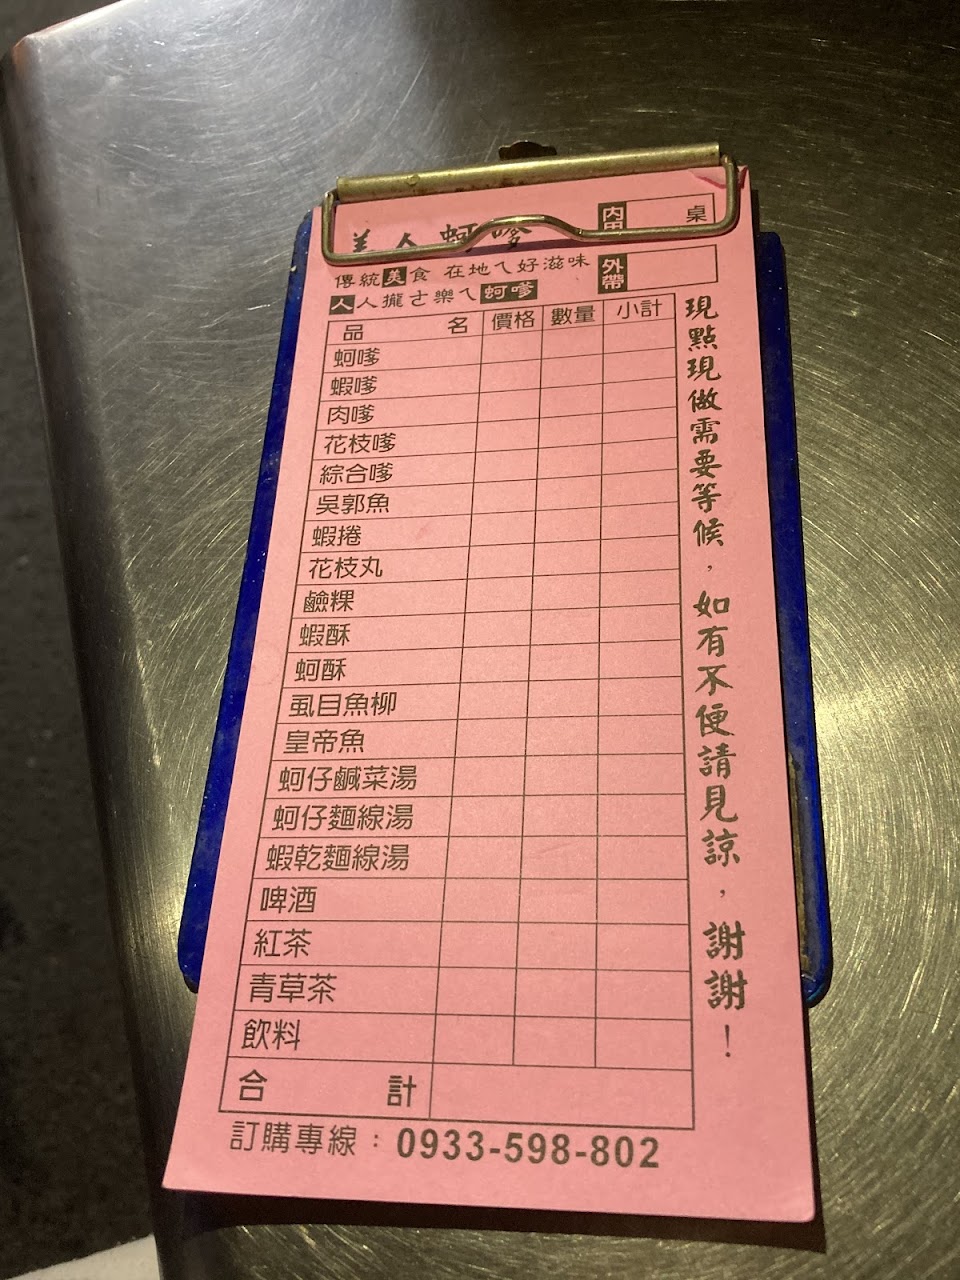 美人蚵嗲
內用 桌
傳統美食 在地ㄟ好滋味
外帶
人人攏ㄜ樂ㄟ蚵嗲
品名 價格 數量 小計
蚵嗲
蝦嗲
肉嗲
花枝嗲
綜合嗲
吳郭魚
蝦捲
花枝丸
鹼粿
蝦酥
蚵酥
虱目魚柳
皇帝魚
蚵仔鹹菜湯
蚵仔麵線湯
蝦乾麵線湯
啤酒
紅茶
青草茶
飲料
合計
訂購專線：0933-598-802
現點現做需要等候，如有不便請見諒，謝謝！